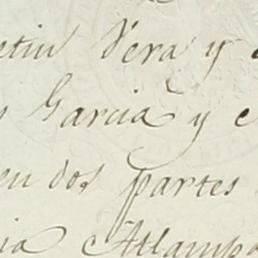 etin Vera y
s Garcia y e
en dos partes
ia e Atlampa